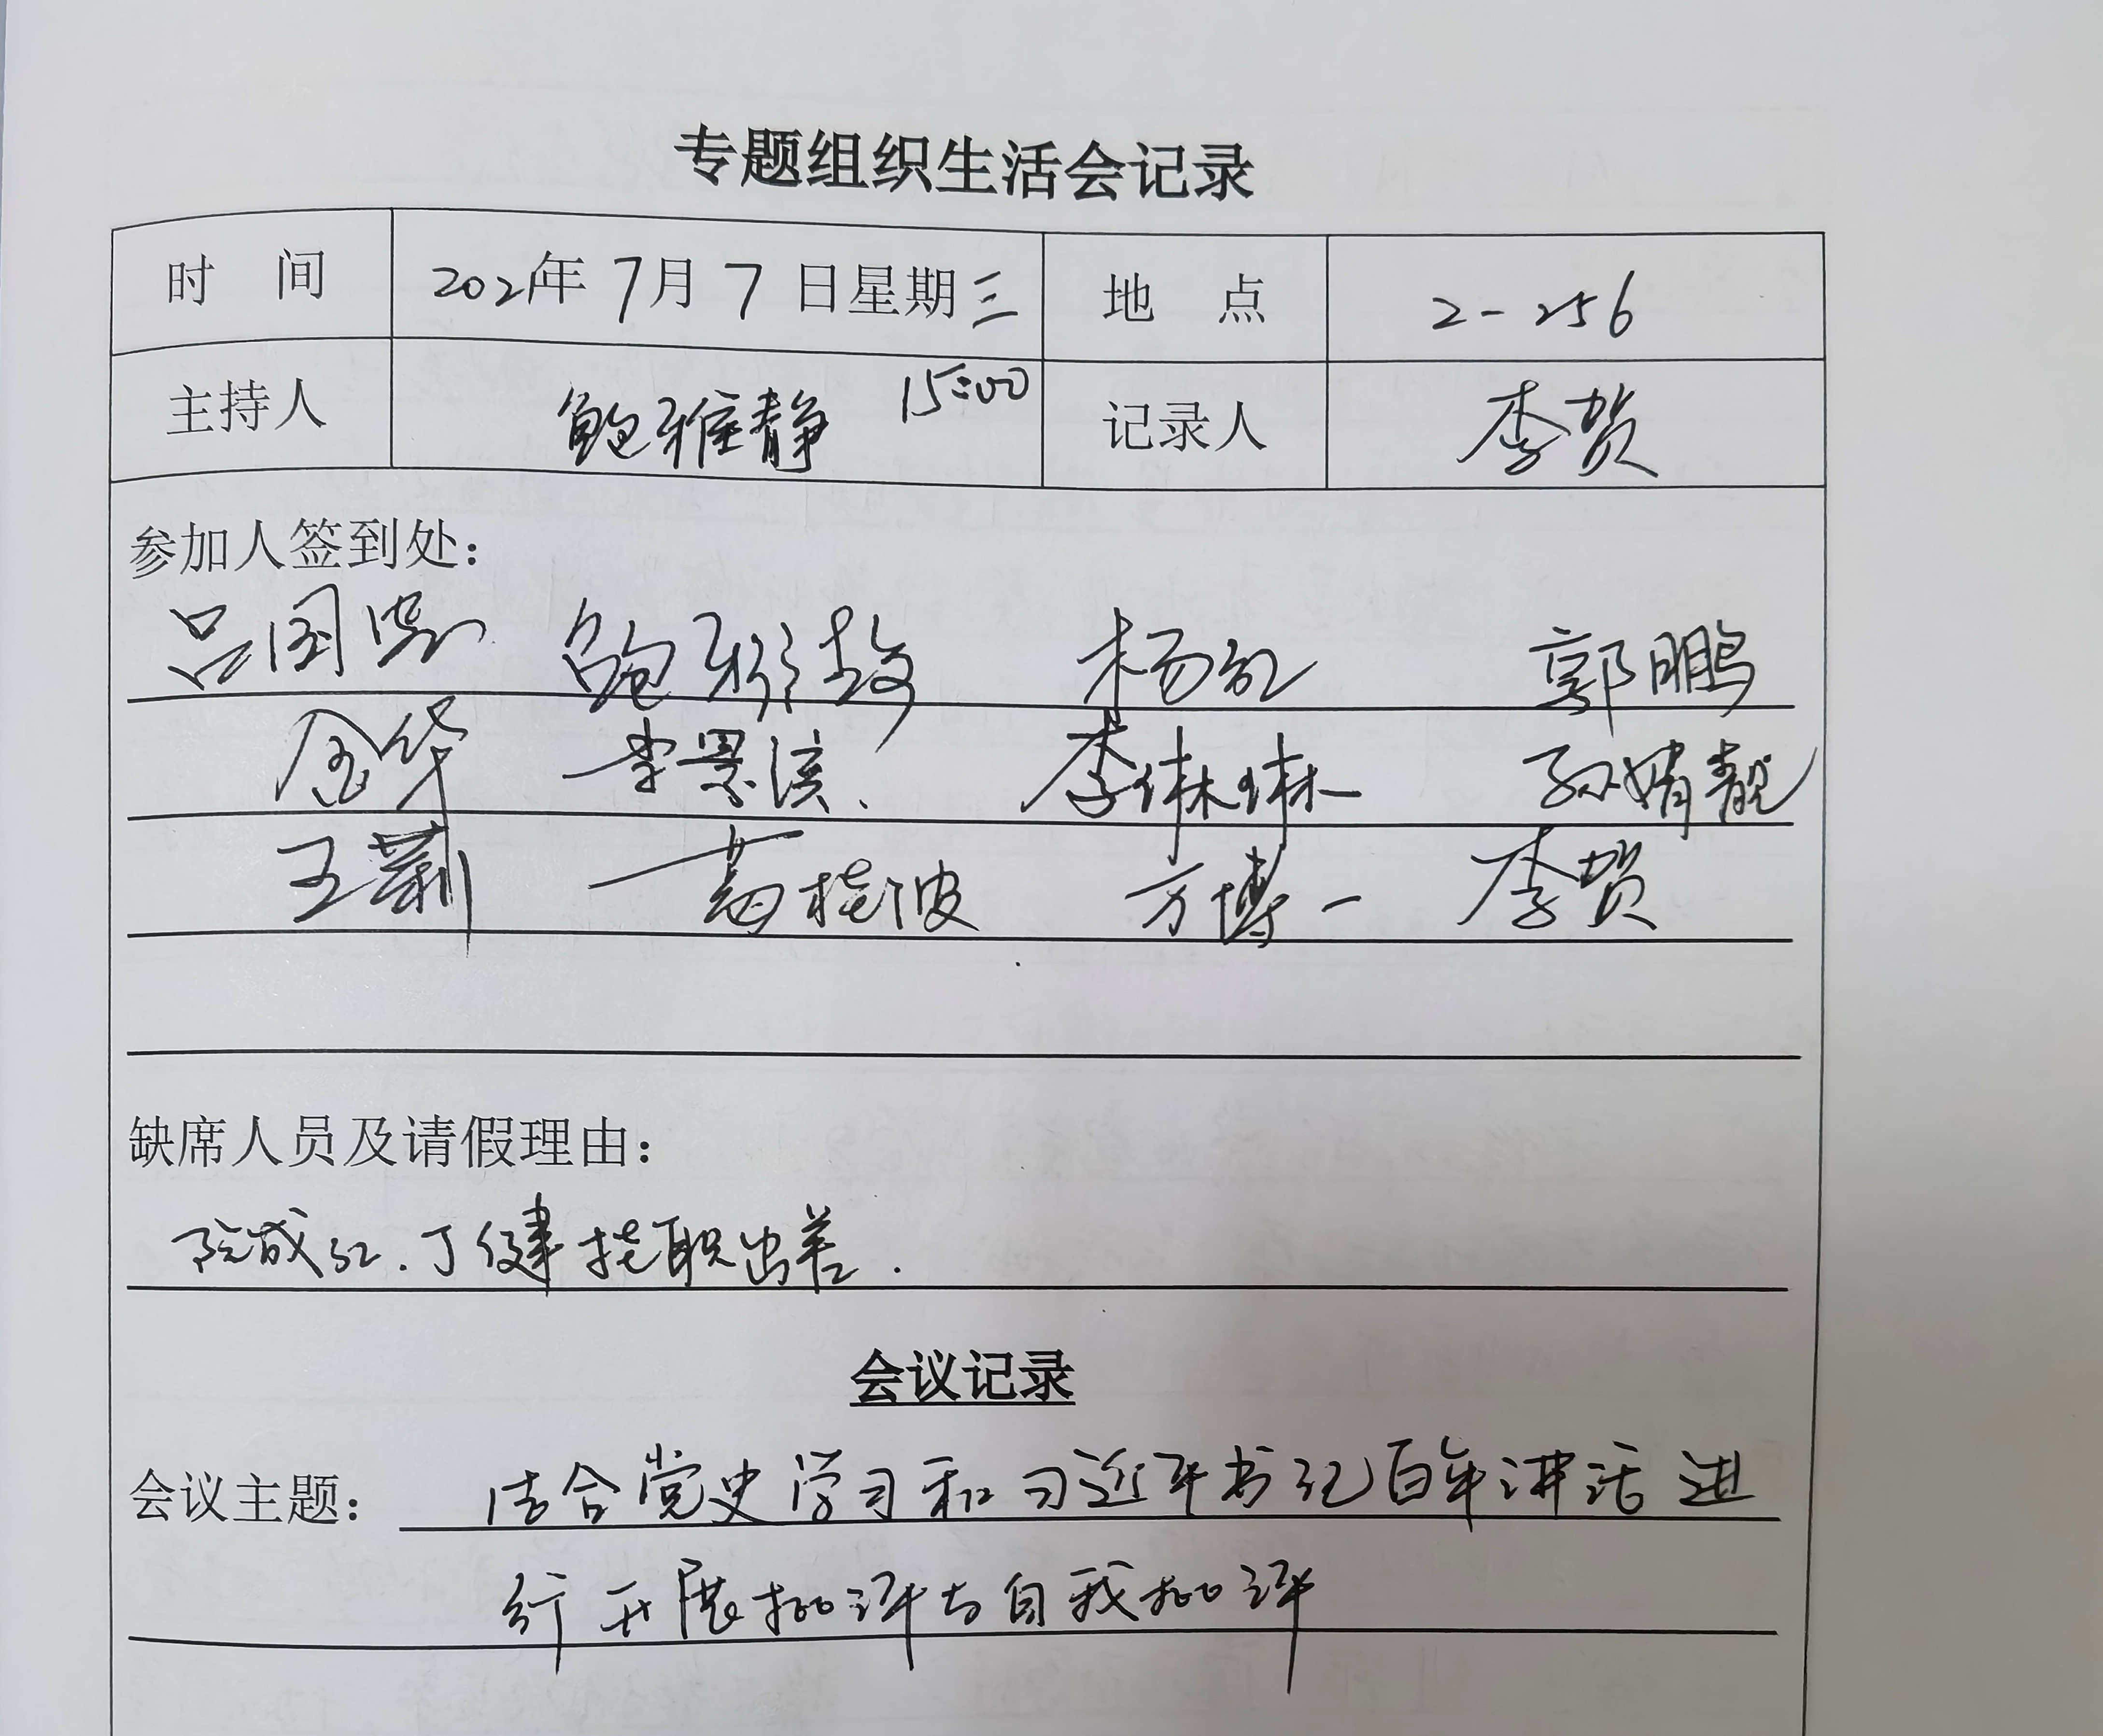 专题组织生活会记录
时 间 2021年 7月 7 日星期三 地 点 2-256
主持人 鲍雅静 15:00 记录人 李贺
参加人签到处：
吕国 鲍雅静 杨红 郭鹏
金华 李景滨 李琳琳 孙婧靓
王莉 葛桂波 方博一 李贺
缺席人员及请假理由：
阮成红. 丁健 挂职出差.
会议记录
会议主题： 结合党史学习和习近平书记百年讲话 进
行 开展批评与自我批评